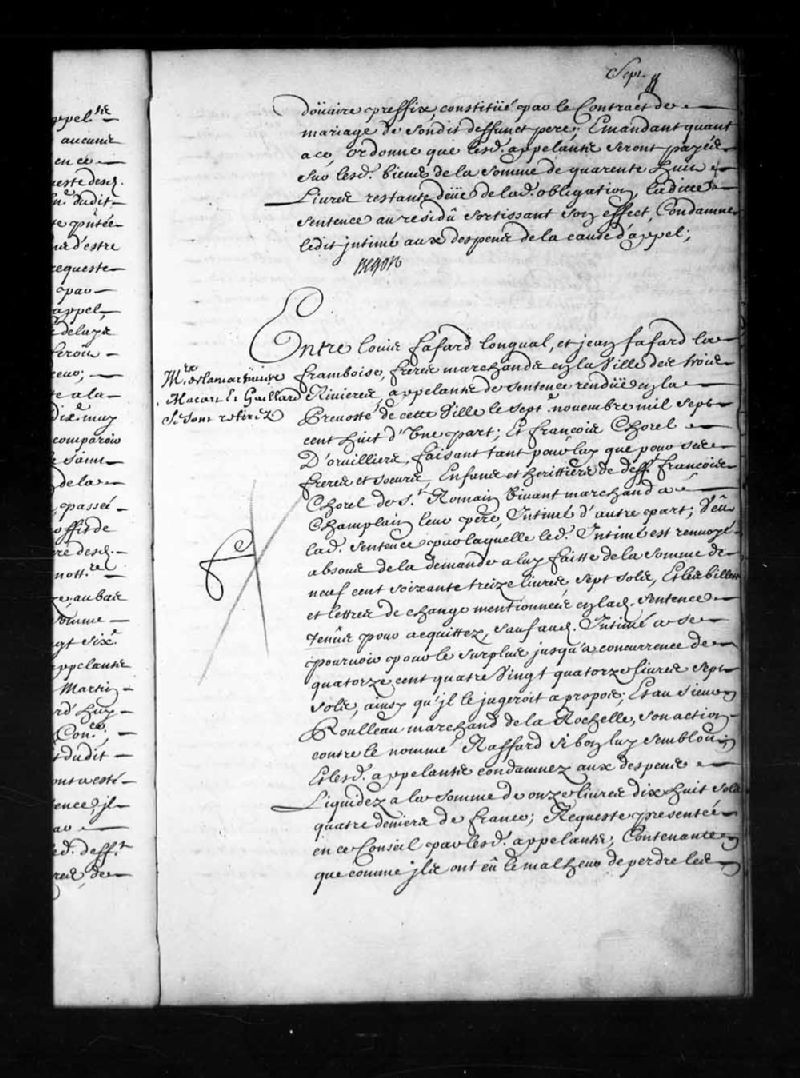 Sept
ppel.te
aucune
en ce
ueste desd.
dudit
e d'estre
equeste
par
appel
de la
e a la
dix
comparoir
de la
passé
offis de
re desd.
nott.re
au bas
somme
gt six
ppelante
Martin
rd Luy
Con.
dudit
ence, jl
ed. deff.t
doüaire preffix, constitüé par le Contract de
mariage de sondit deffunct pere; Emandant quant
a ce, ordonne que lesd. appelants seront payés
sur lesd. biens de la somme de quarente huit
Livres restante deüe de lad. obligation, ladite
sentence au residû sortissant son effect, Condamne
ledit jntimé aux despens de la cause d'appel;
Begon
Entre Louis fafard Longval, et jean fafard la
framboise, freres marchands en la Ville des trois
Rivieres, appelants de sentence rendüe en la
Prevosté de cette Ville le sept.e novembre mil sept
cent huit d'Une part; Et françois Chorel
D'orvilliers, faisant tant pour luy que pour ses
freres et soeurs, Enfans et heritiers de deff.t françois
Chorel de S.t Romain vivant marchand a
Champlain leur pere, Intimé d'autre part; Veu
lad. sentence par laquelle led. Intimé est renvoyé
absous de la demande a luy faitte de la somme de
neuf cent soixante treize livres sept sols, Et les billets
et lettres de change mentionnés en lad. sentence
tenus pour acquittez, sauf aud. Intimé a se
pourvoir pour le surplus jusqu'a concurrence de
quatorze cent quatre Vingt quatorze livres sept
sols, ainsy qu'jl le jugeroit a propos; Et au sieur
Roulleau marchand de la Rochelle, son action
contre le nommé Raffard si bon luy sembloit
Et lesd. appelants condamnez aux despens
Liquidez a la somme de onze livres dix huit sols
quatre deniers de france; Requeste presentée
en ce Conseil par lesd. appelants; Contenante
que comme jls ont eû le malheur de perdre les
M.rs de la martiniere
Macart & Gaillard
se sont retirez